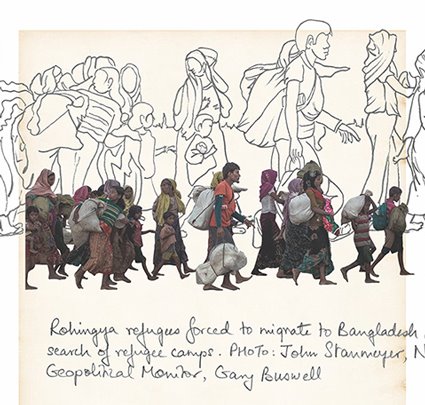 Rohingya refugees forced to migrate to Bangladesh
search of refugee camps. PHOTO: John Stanmeyer, N
Geopolitical Monitor, Gary Buswell